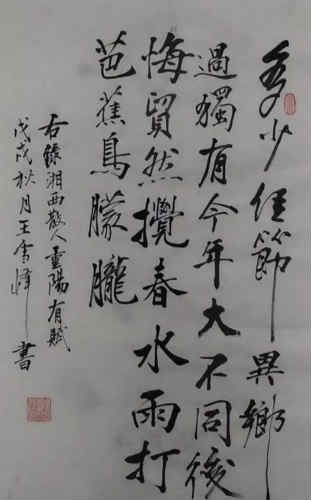 多少佳節異鄉
過獨有今年大不同後
悔貿然攪春水雨打
芭蕉鳥朦朧
右錄湘西散人重陽有賦
戊戌秋月王雪峰書